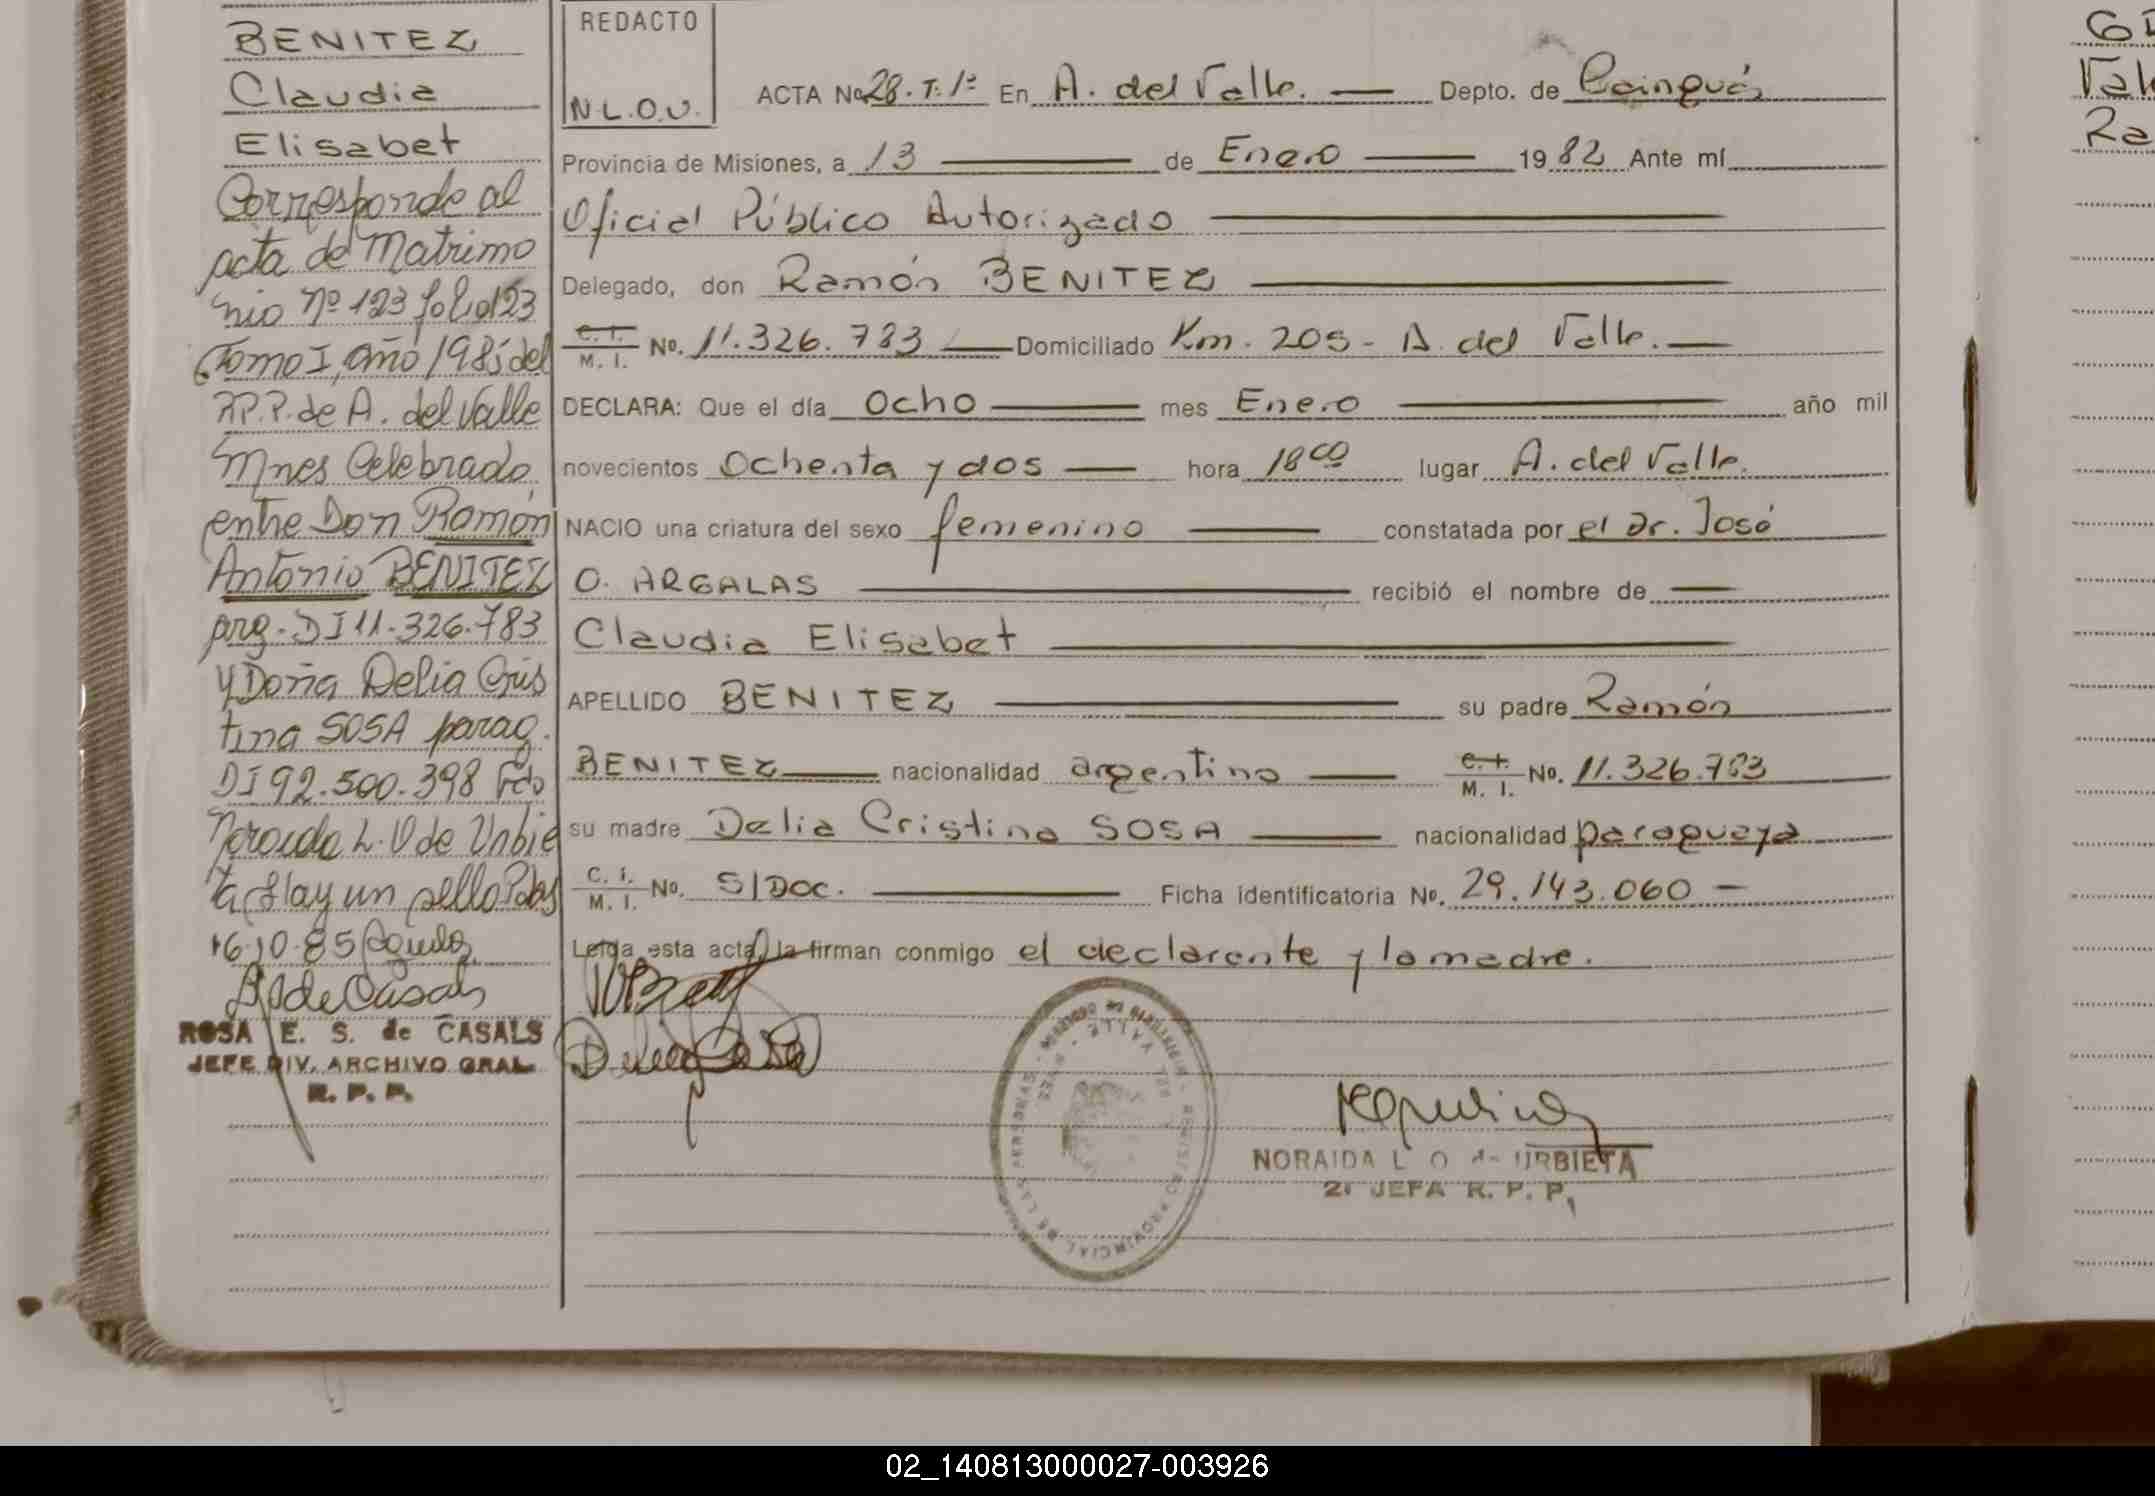 BENITEZ
Claudia
Elisabet
Corresponde al
acta de Matrimo
nio Nº 123 folio 123
Tomo I, año 1985 del
R.P.P. de A. del Valle
Mnes Celebrado,
entre Don Ramón
Antonio BENITEZ
arg. DI 11.326.783
y Doña Delia Cris
tina SOSA parag.
DI 92.500.398 Fdo
Noraida L. O de Urbie
ta Hay un sello Pdas
16.10.85
ROSA E. S. de CASALS
JEFE DIV. ARCHIVO GRAL.
R. P. P.
REDACTO
N.L.O.U.
ACTA No 28. T. 1º En A. del Valle. Depto. de Cainguás
Provincia de Misiones, a 13 de Enero 1982 Ante mí
Oficial Público Autorizado
Delegado, don Ramón BENITEZ
C. I. M. I. No. 11.326.783 Domiciliado Km. 205 - A. del Valle.
DECLARA: Que el día Ocho mes Enero año mil
novecientos Ochenta y dos hora 18 00 lugar A. del Valle.
NACIO una criatura del sexo femenino constatada por el Dr. José
O. ARGALAS recibió el nombre de
Claudia Elisabet
APELLIDO BENITEZ su padre Ramón
BENITEZ nacionalidad argentino C. I. M. I. No. 11.326.783
su madre Delia Cristina SOSA nacionalidad paraguaya
C. I. M. I. No. S/DOC. Ficha identificatoria No. 29.143.060
Leída esta acta, la firman conmigo el declarente y la madre.
NORAIDA L. O. de URBIETA
2ª JEFA R. P. P.
Ra
02_140813000027-003926